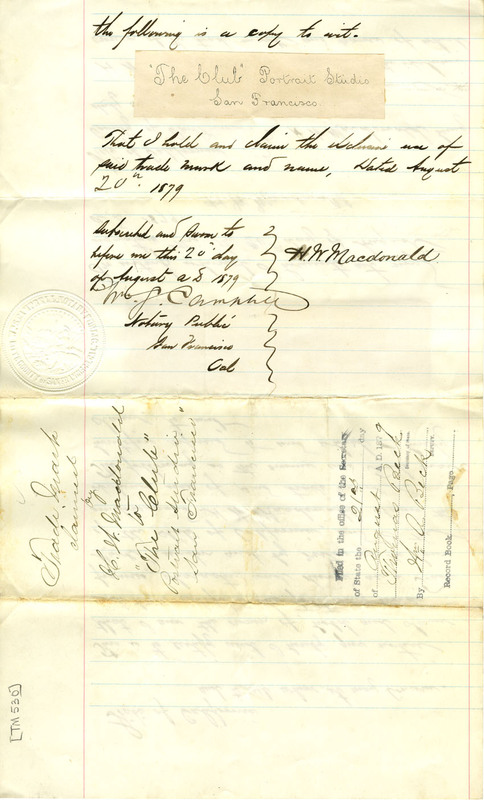 the following is a copy to wit.
"The Club" Portrait Studio
San Francisco.
That I hold and claim the exclusive use of
said trade mark and name, Dated August
20th 1879
Subscribed and sworn to
before me this 20th day
of August A D 1879
H. W. Macdonald
W. J. Campbell
Notary Public
San Francisco
Cal
Trade Mark
Claimed
by
H. W. Macdonald
to
"The Club"
Portrait Studio
San Francisco"
Filed in the office of the Secretary
of State the 21st day
of August A.D. 1879
Thomas Beck
Secretary of State
By Wm Beck
Deputy
Record Book Page
[TM 530]